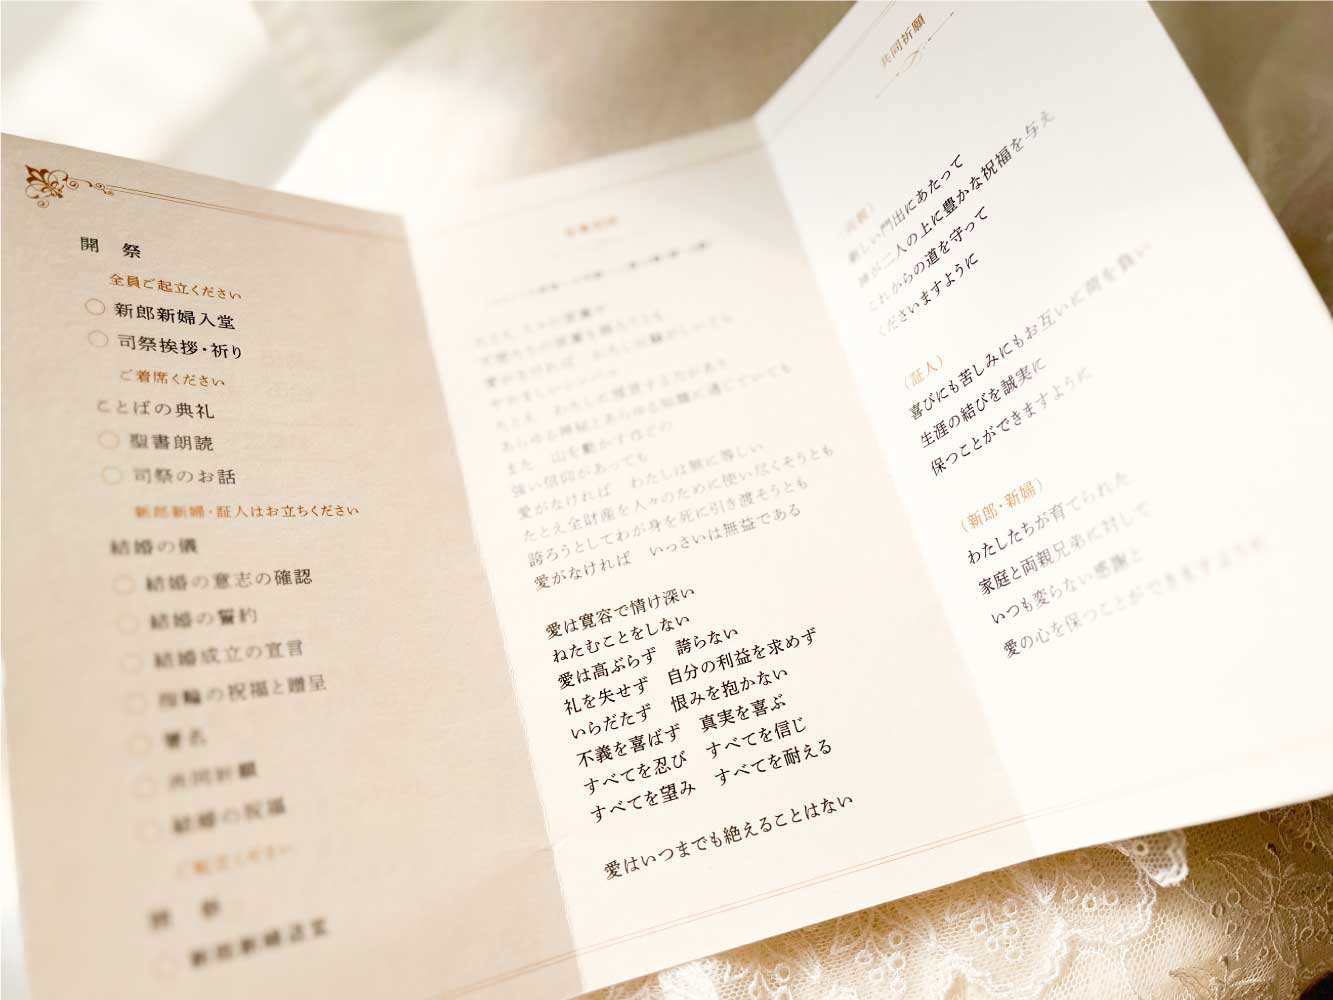 開 祭
全員ご起立ください
新郎新婦入堂
司祭挨拶・祈り
ご着席ください
ことばの典礼
聖書朗読
司祭のお話
新郎新婦・証人はお立ちください
結婚の儀
結婚の意志の確認
結婚の誓約
結婚成立の宣言
指輪の祝福と贈呈
署名
共同祈願
結婚の祝福
新郎新婦退堂
愛がなければ
たとえ わたしに預言する力があり
あらゆる神秘とあらゆる知識に通じていても
また 山を動かすほどの
強い信仰があっても
愛がなければ わたしは無に等しい
たとえ全財産を人々のために使い尽くそうとも
誇ろうとしてわが身を死に引き渡そうとも
愛がなければ いっさいは無益である
愛は寛容で情け深い
ねたむことをしない
愛は高ぶらず 誇らない
礼を失せず 自分の利益を求めず
いらだたず 恨みを抱かない
不義を喜ばず 真実を喜ぶ
すべてを忍び すべてを信じ
すべてを望み すべてを耐える
愛はいつまでも絶えることはない
共同祈願
新しい門出にあたって
神が二人の上に豊かな祝福を与え
これからの道を守って
くださいますように
(証人)
喜びにも苦しみにもお互いに荷を負い
生涯の結びを誠実に
保つことができますように
(新郎・新婦)
わたしたちが育てられた
家庭と両親兄弟に対して
いつも変らない感謝と
愛の心を保つことができますように